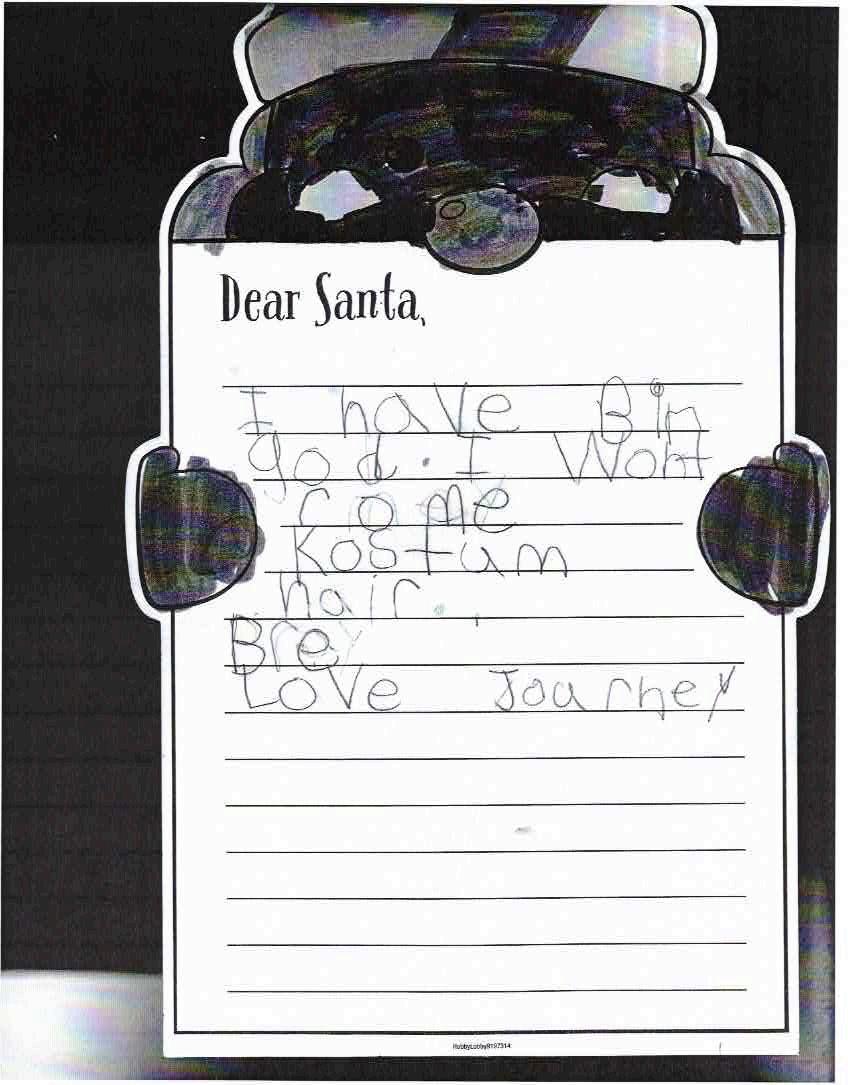 Dear Santa,
I have Bin
god. I Wont
rome
Kostum
hair.
Brey
Love Journey
HobbyLobby9197314